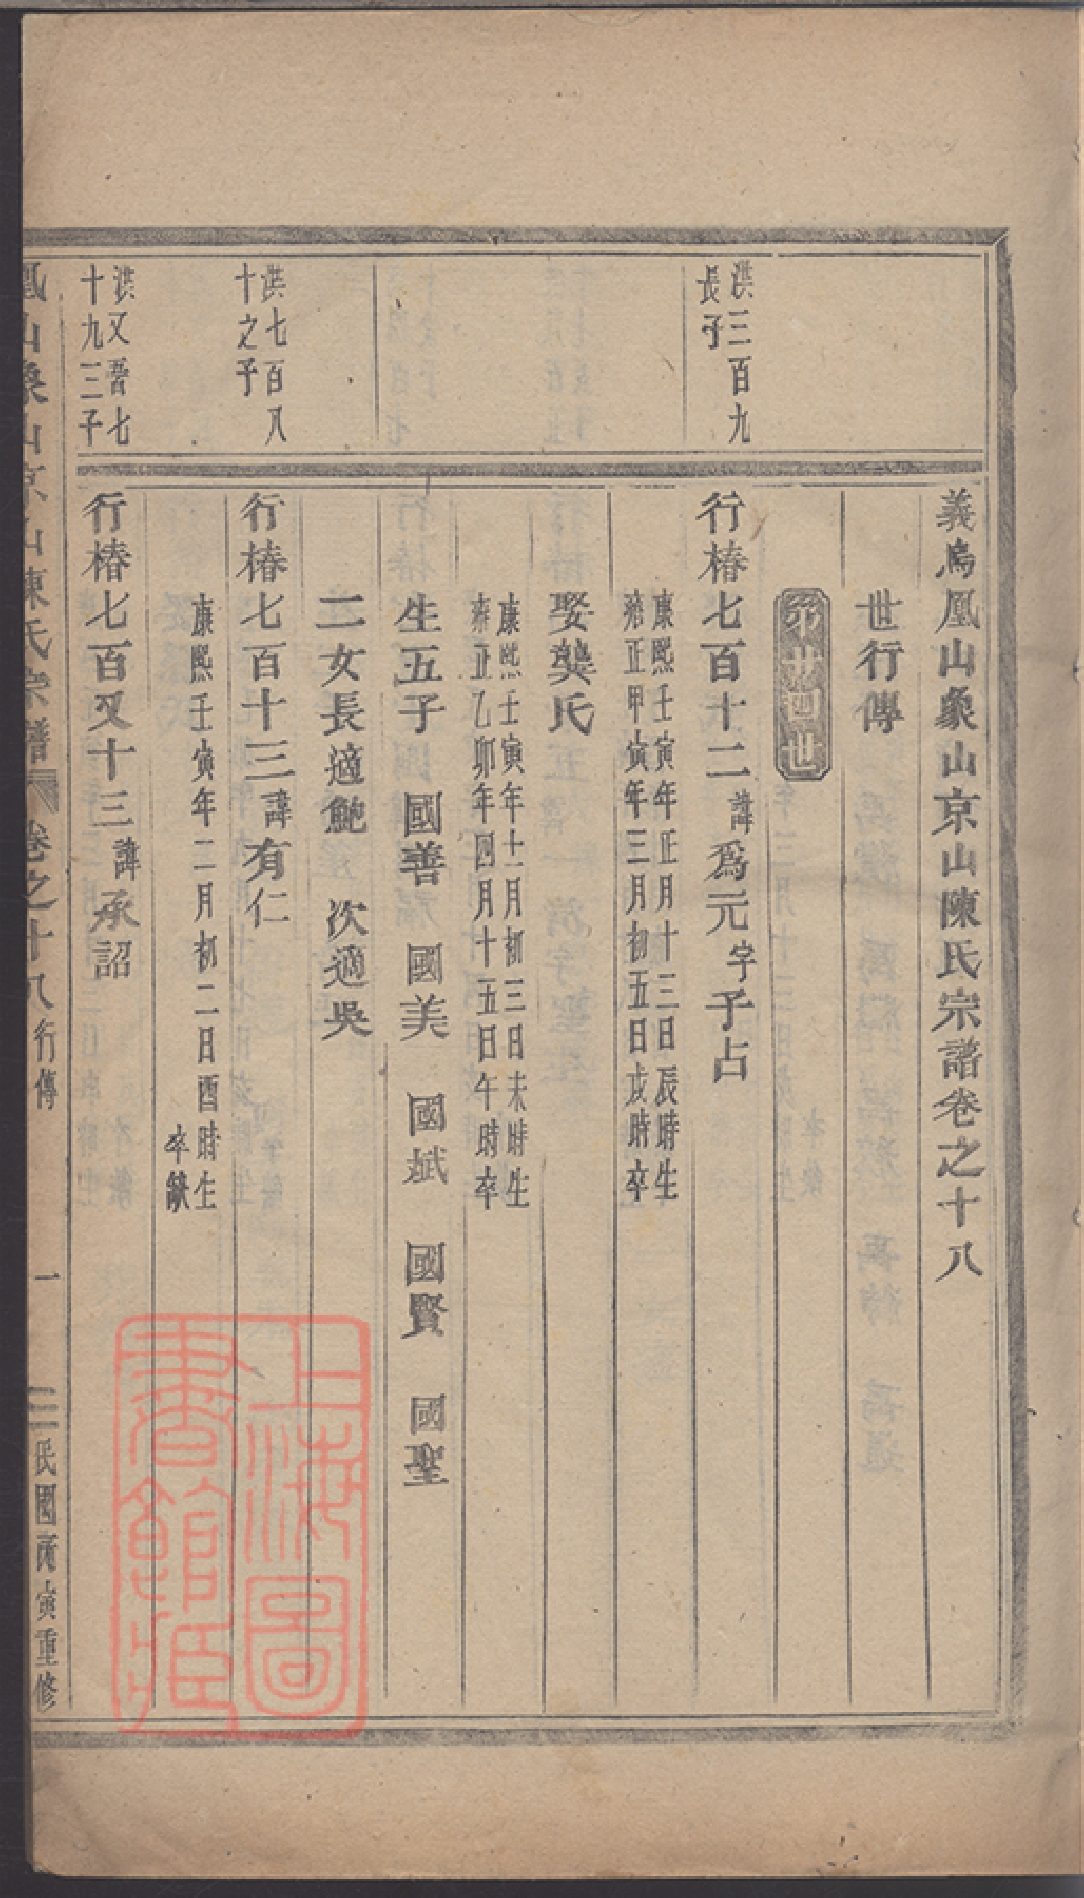 義烏鳳山象山京山陳氏宗譜卷之十八
世行傳
洪三百九
長子
行椿七百十二諱爲元字子占
康熙壬寅年正月十三日辰時生
雍正甲寅年三月初五日戌時卒
娶龔氏
康熙壬寅年十一月初三日未時生
雍正乙卯年四月十五日午時卒
生五子 國善 國美 國斌 國賢 國聖
二女長適鮑 次適吳
洪七百八
十之子
行椿七百十三諱有仁
康熙壬寅年二月初二日酉時生
卒缺
洪又晉七
十九三子
行椿七百又十三諱承詔
鳳山象山京山陳氏宗譜 卷之十八 行傳 一 民國丙寅重修
上海圖
書館藏